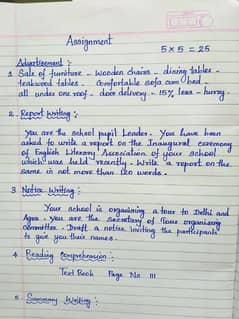 Assignment
5 x 5 = 25
Advertisement :
1. Sale of furniture - wooden chairs - dining tables -
teakwood tables - comfortable sofa cum bed -
all under one roof - door delivery - 15% less - hurry.
2. Report Writing :
You are the school pupil Leader. You have been
asked to write a report on the Inaugural ceremony
of English Literary Association of your school
which was held recently. Write a report on the
same in not more than 120 words.
3 Notice Writing :
Your school is organising a tour to Delhi and
Agra. You are the secretary of Tour organising
committee. Draft a notice inviting the participants
to give you their names.
4 Reading Comprehension :
Text Book Page No 111
5 Summary Writing :